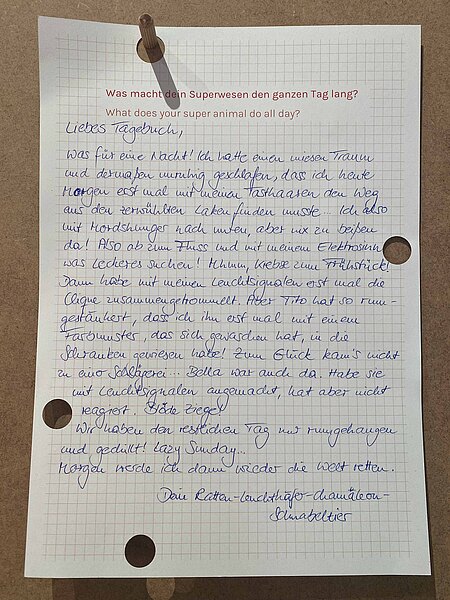 Was macht dein Superwesen den ganzen Tag lang?
What does your super animal do all day?
Liebes Tagebuch,
Was für eine Nacht! Ich hatte einen miesen Traum
und dermaßen unruhig geschlafen, dass ich heute
Morgen erst mal mit meinen Tasthaaren den Weg
aus den zerwühlten Laken finden musste... Ich also
mit Mordshunger nach unten, aber nix zu beißen
da! Also ab zum Fluss und mit meinem Elektrosinn
was Leckeres suchen! Mhmm, Krebse zum Frühstück!
Dann habe mit meinen Leuchtsignalen erst mal die
Clique zusammengetrommelt. Aber Tito hat so rum-
gestänkert, dass ich ihn erst mal mit einem
Farbmuster, das sich gewaschen hat, in die
Schranken gewiesen habe! Zum Glück kam's nicht
zu einer Schlägerei... Bella war auch da. Habe sie
mit Leuchtsignalen angemacht, hat aber nicht
reagiert. Blöde Ziege!
Wir haben den restlichen Tag nur rumgehangen
und gechillt! Lazy Sunday...
Morgen werde ich dann wieder die Welt retten.
Dein Ratten-Leuchtkäfer-Chamäleon-
Schnabeltier